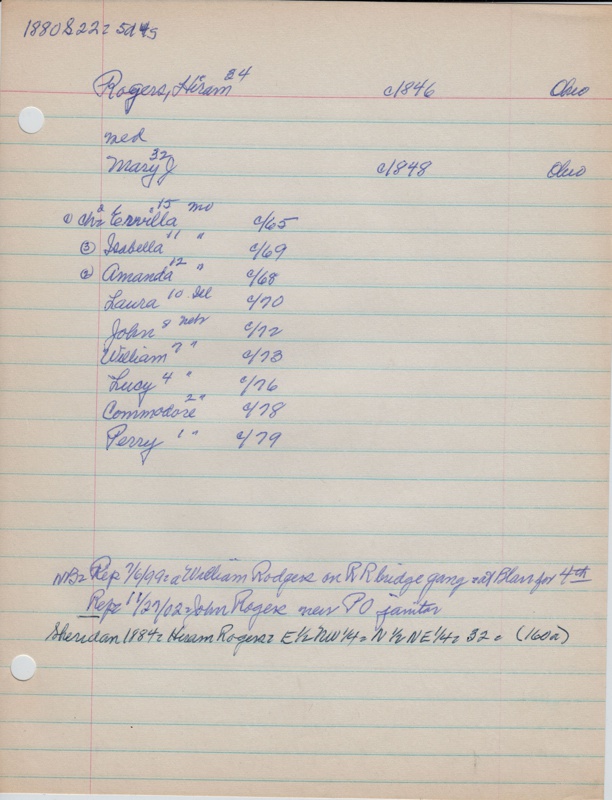 1880 S22 = 5d 45
Rogers, Hiram 34 c1846 Ohio
med
Mary J 32 c1848 Ohio
① ch= Ervilla 15 mo c/65
③ Isabella 11 " c/69
② Amanda 12 " c/68
Laura 10 Ill c/70
John 8 nebr c/72
William 7 " c/73
Lucy 4 " c/76
Commodore 2 " c/78
Perry 1 " c/79
NB= Rep 7/6/99= a William Rodgers on RR bridge gang = at Blair for 4th
Rep= 11/27/02= John Rogers new PO janitor
Sheridan 1884= Hiram Rogers= E½ NW¼= N½ NE¼= 32= (160a)